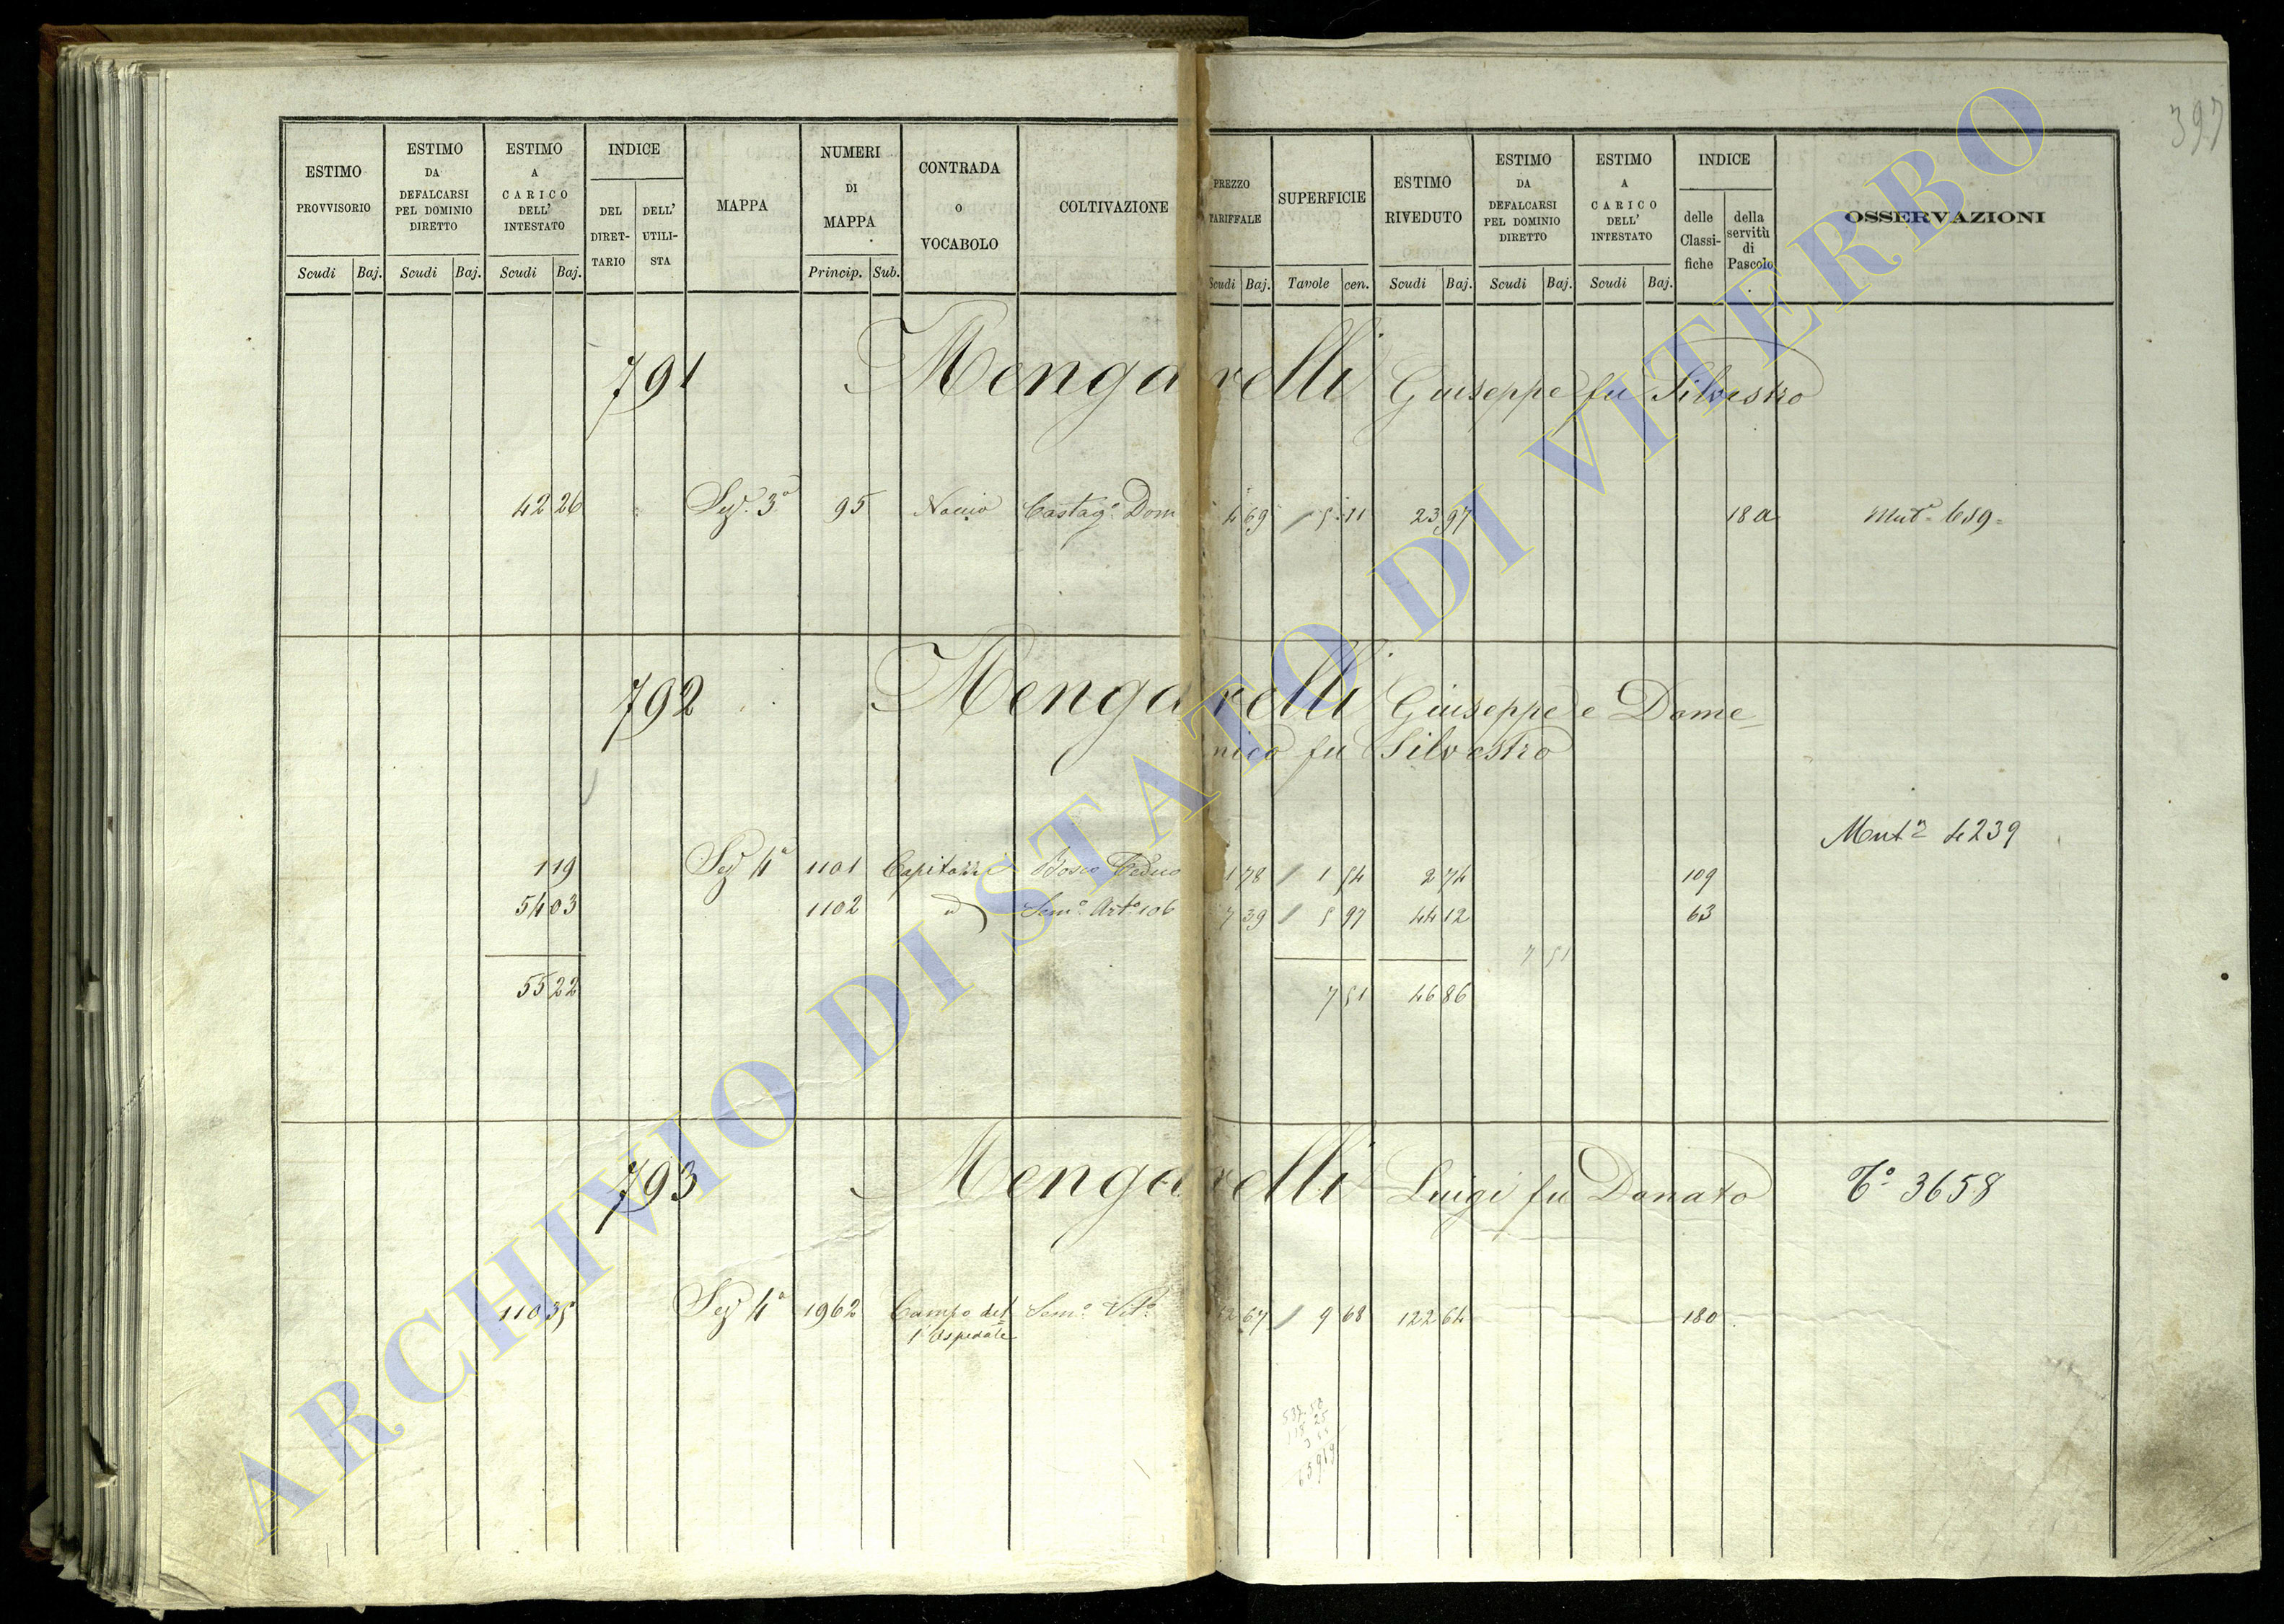 397
ESTIMO PROVVISORIO Scudi Baj.
ESTIMO DA DEFALCARSI PEL DOMINIO DIRETTO Scudi Baj.
ESTIMO A CARICO DELL' INTESTATO Scudi Baj.
INDICE DEL DIRET-TARIO DELL' UTILI-STA
MAPPA
NUMERI DI MAPPA Princip. Sub.
CONTRADA o VOCABOLO
COLTIVAZIONE
PREZZO TARIFFALE Scudi Baj.
SUPERFICIE Tavole cen.
ESTIMO RIVEDUTO Scudi Baj.
ESTIMO DA DEFALCARSI PEL DOMINIO DIRETTO Scudi Baj.
ESTIMO A CARICO DELL' INTESTATO Scudi Baj.
INDICE delle Classi-fiche della servitù di Pascolo
OSSERVAZIONI
791 Mengarelli Giuseppe fu Silvestro
42 26 Sez. 3ª 95 Castag.º Dom 4 69 5 11 23 97 18 a Mutª 689
792 Mengarelli Giuseppe e Dome
nico fu Silvestro
Mutª 4239
1 19 Sez 4ª 1101 Bosco Ceduo 1 78 1 54 2 74 109
54 03 1102 Sem.º Art.º 106 7 39 5 97 44 12 63
7 51
55 22 7 51 46 86
793 Mengarelli Luigi fu Donato Tº 3658
110 35 Sez 4ª 1962 Campo del Sem.º Vit.º 12 67 9 68 122 64 180
l'Ospedale
ARCHIVIO DI STATO DI VITERBO